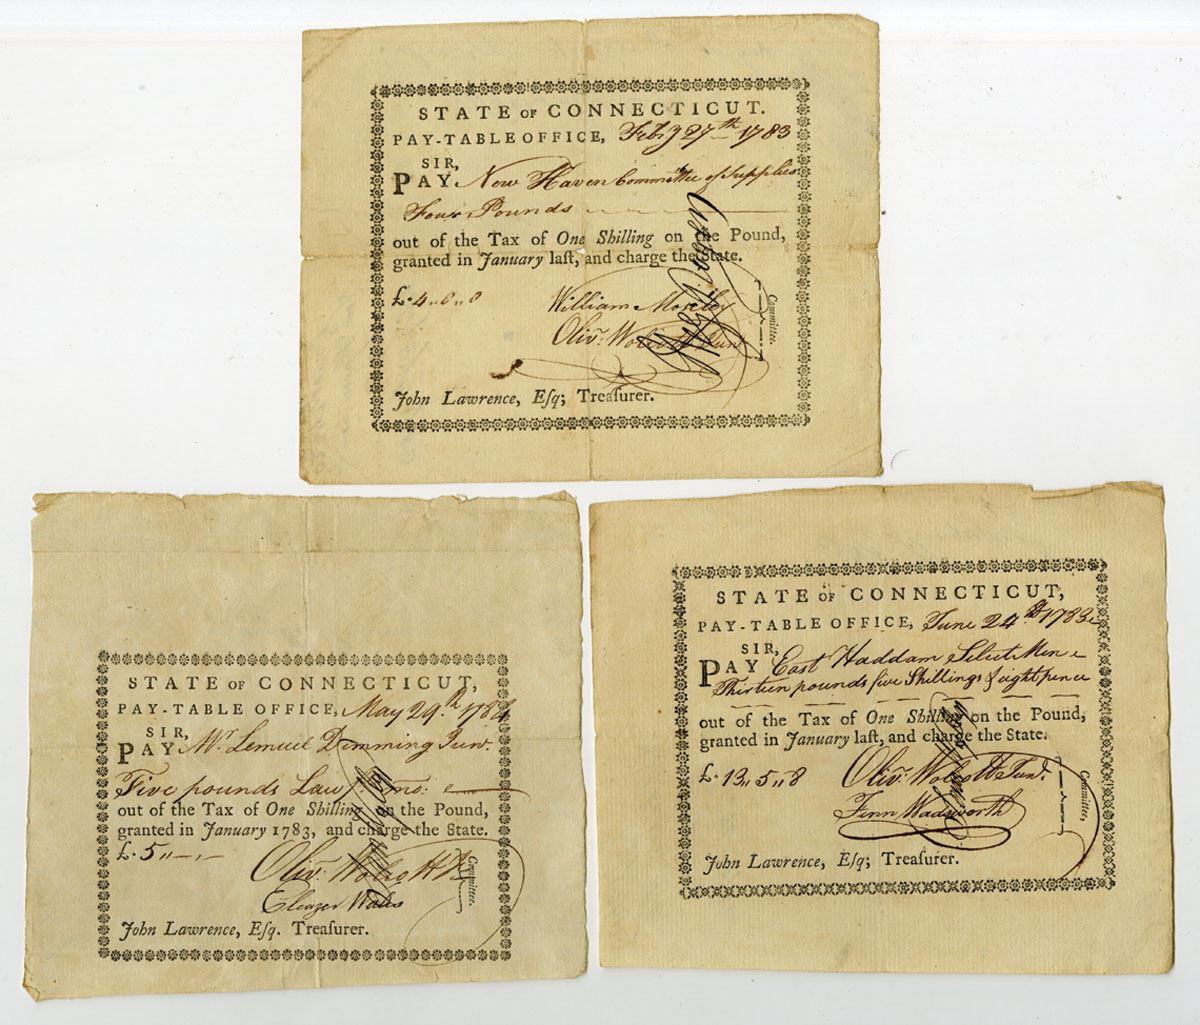 STATE OF CONNECTICUT.
PAY-TABLE OFFICE, Feby 27th 1783
SIR,
PAY New Haven Committee of Supplies
Four Pounds
out of the Tax of One Shilling on the Pound,
granted in January laſt, and charge the State.
£.4..0..0
William Moseley
Olivr. Wolcott Junr
Committee.
John Lawrence, Eſq; Treaſurer.
STATE OF CONNECTICUT,
PAY-TABLE OFFICE, May 29.th 1784
SIR,
PAY Mr. Lemuel Demming Junr.
Five pounds Law mo:
out of the Tax of One Shilling on the Pound,
granted in January 1783, and charge the State.
£.5..
Olivr. Wolcott Jr
Eleazer Wales
Committee.
John Lawrence, Eſq. Treaſurer.
STATE OF CONNECTICUT,
PAY-TABLE OFFICE, June 24.th 1783
SIR,
PAY East Haddam Select Men
Thirteen pounds five Shillings & eight pence
out of the Tax of One Shilling on the Pound,
granted in January laſt, and charge the State.
£.13..5..8
Olivr. Wolcott Junr.
Fenn Wadsworth
Committee,
John Lawrence, Eſq; Treaſurer.